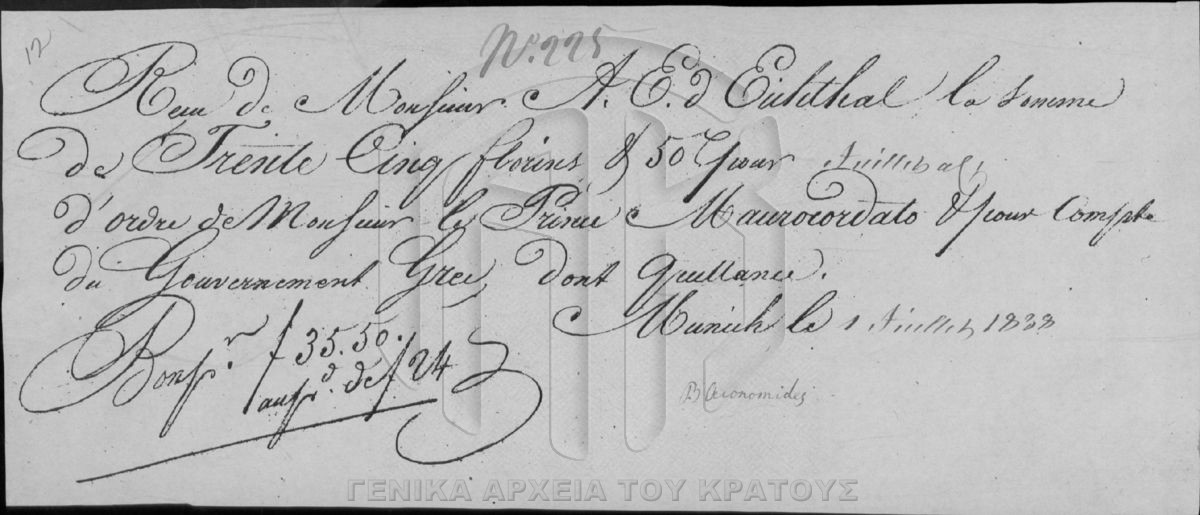 12
No. 225
Reçu de Monsieur A. E. d'Eichthal la somme
de Trente Cinq florins & 50 pour Juillet
d'ordre de Monsieur le Prince Maurocordato & pour Compte
du Gouvernement Grec, dont quittance.
Munich le 1 Juillet 1838
Bon pr. f 35.50.
au pd. de f 24
B Œconomides
ΓΕΝΙΚΑ ΑΡΧΕΙΑ ΤΟΥ ΚΡΑΤΟΥΣ